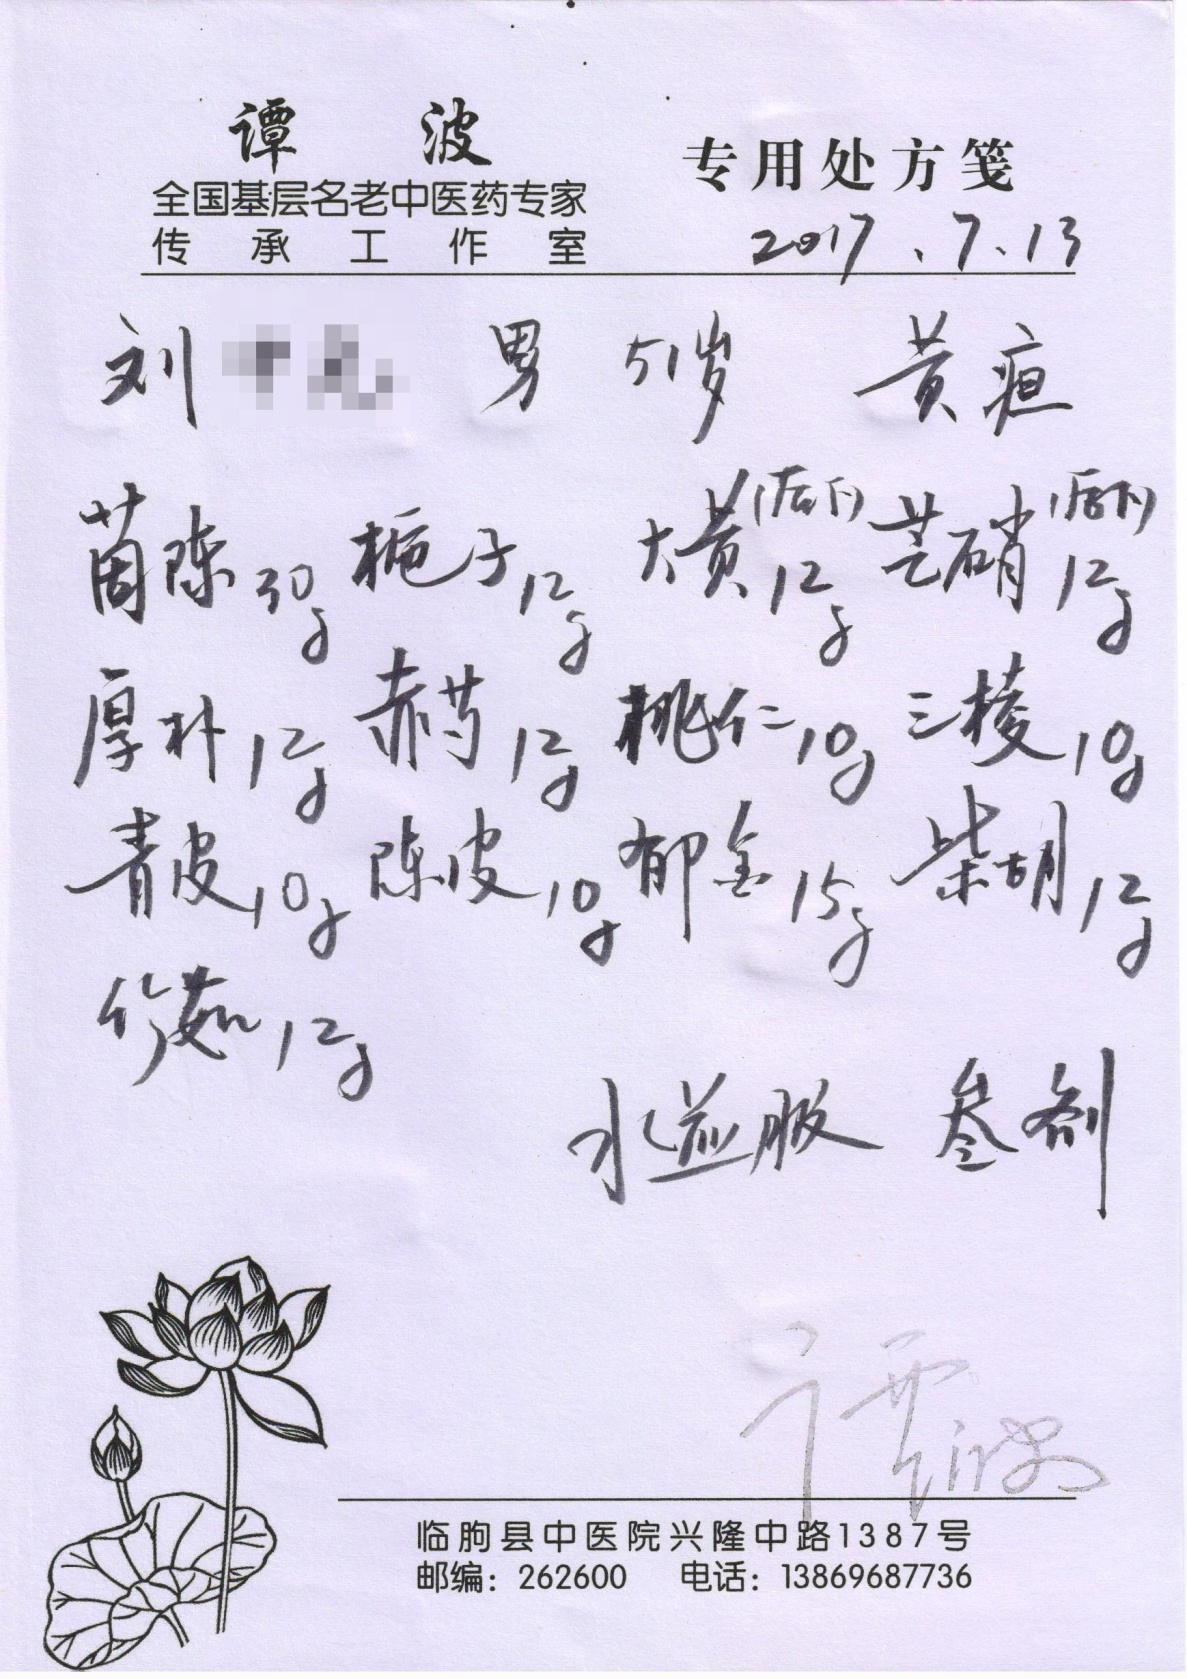 谭波
专用处方笺
全国基层名老中医药专家
传承工作室
2017.7.13
刘 男 51岁 黄疸
茵陈30g 栀子12g 大黄(后下)12g 芒硝(后下)12g
厚朴12g 赤芍12g 桃仁10g 三棱10g
青皮10g 陈皮10g 郁金15g 柴胡12g
竹茹12g
水煎服 叁剂
谭波
临朐县中医院兴隆中路1387号
邮编：262600 电话：13869687736